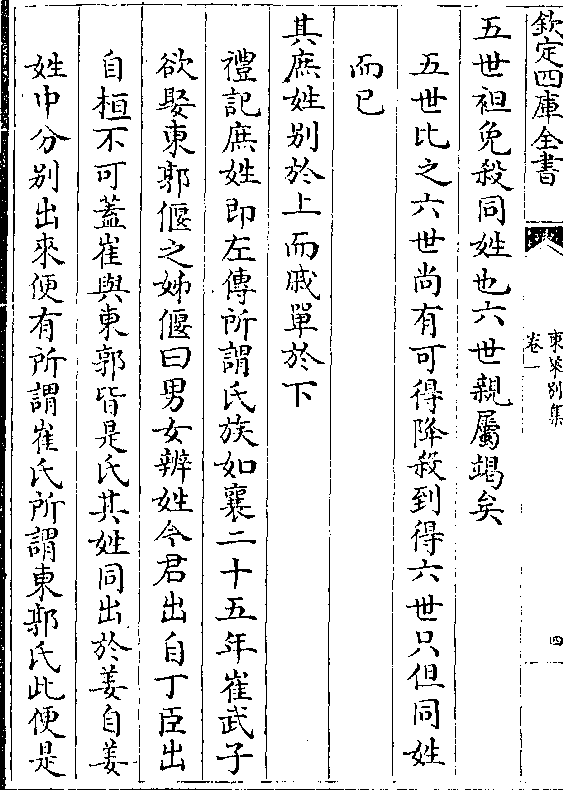 欽定四庫全書
東萊別集
卷一
四
五世袒免殺同姓也六世親屬竭矣
五世比之六世尚有可得降殺到得六世只但同姓
而已
其庶姓别於上而戚單於下
禮記庶姓即左傳所謂氏族如襄二十五年崔武子
欲娶東郭偃之姊偃曰男女辨姓今君出自丁臣出
自桓不可蓋崔與東郭皆是氏其姓同出於姜自姜
姓中分别出來便有所謂崔氏所謂東郭氏此便是